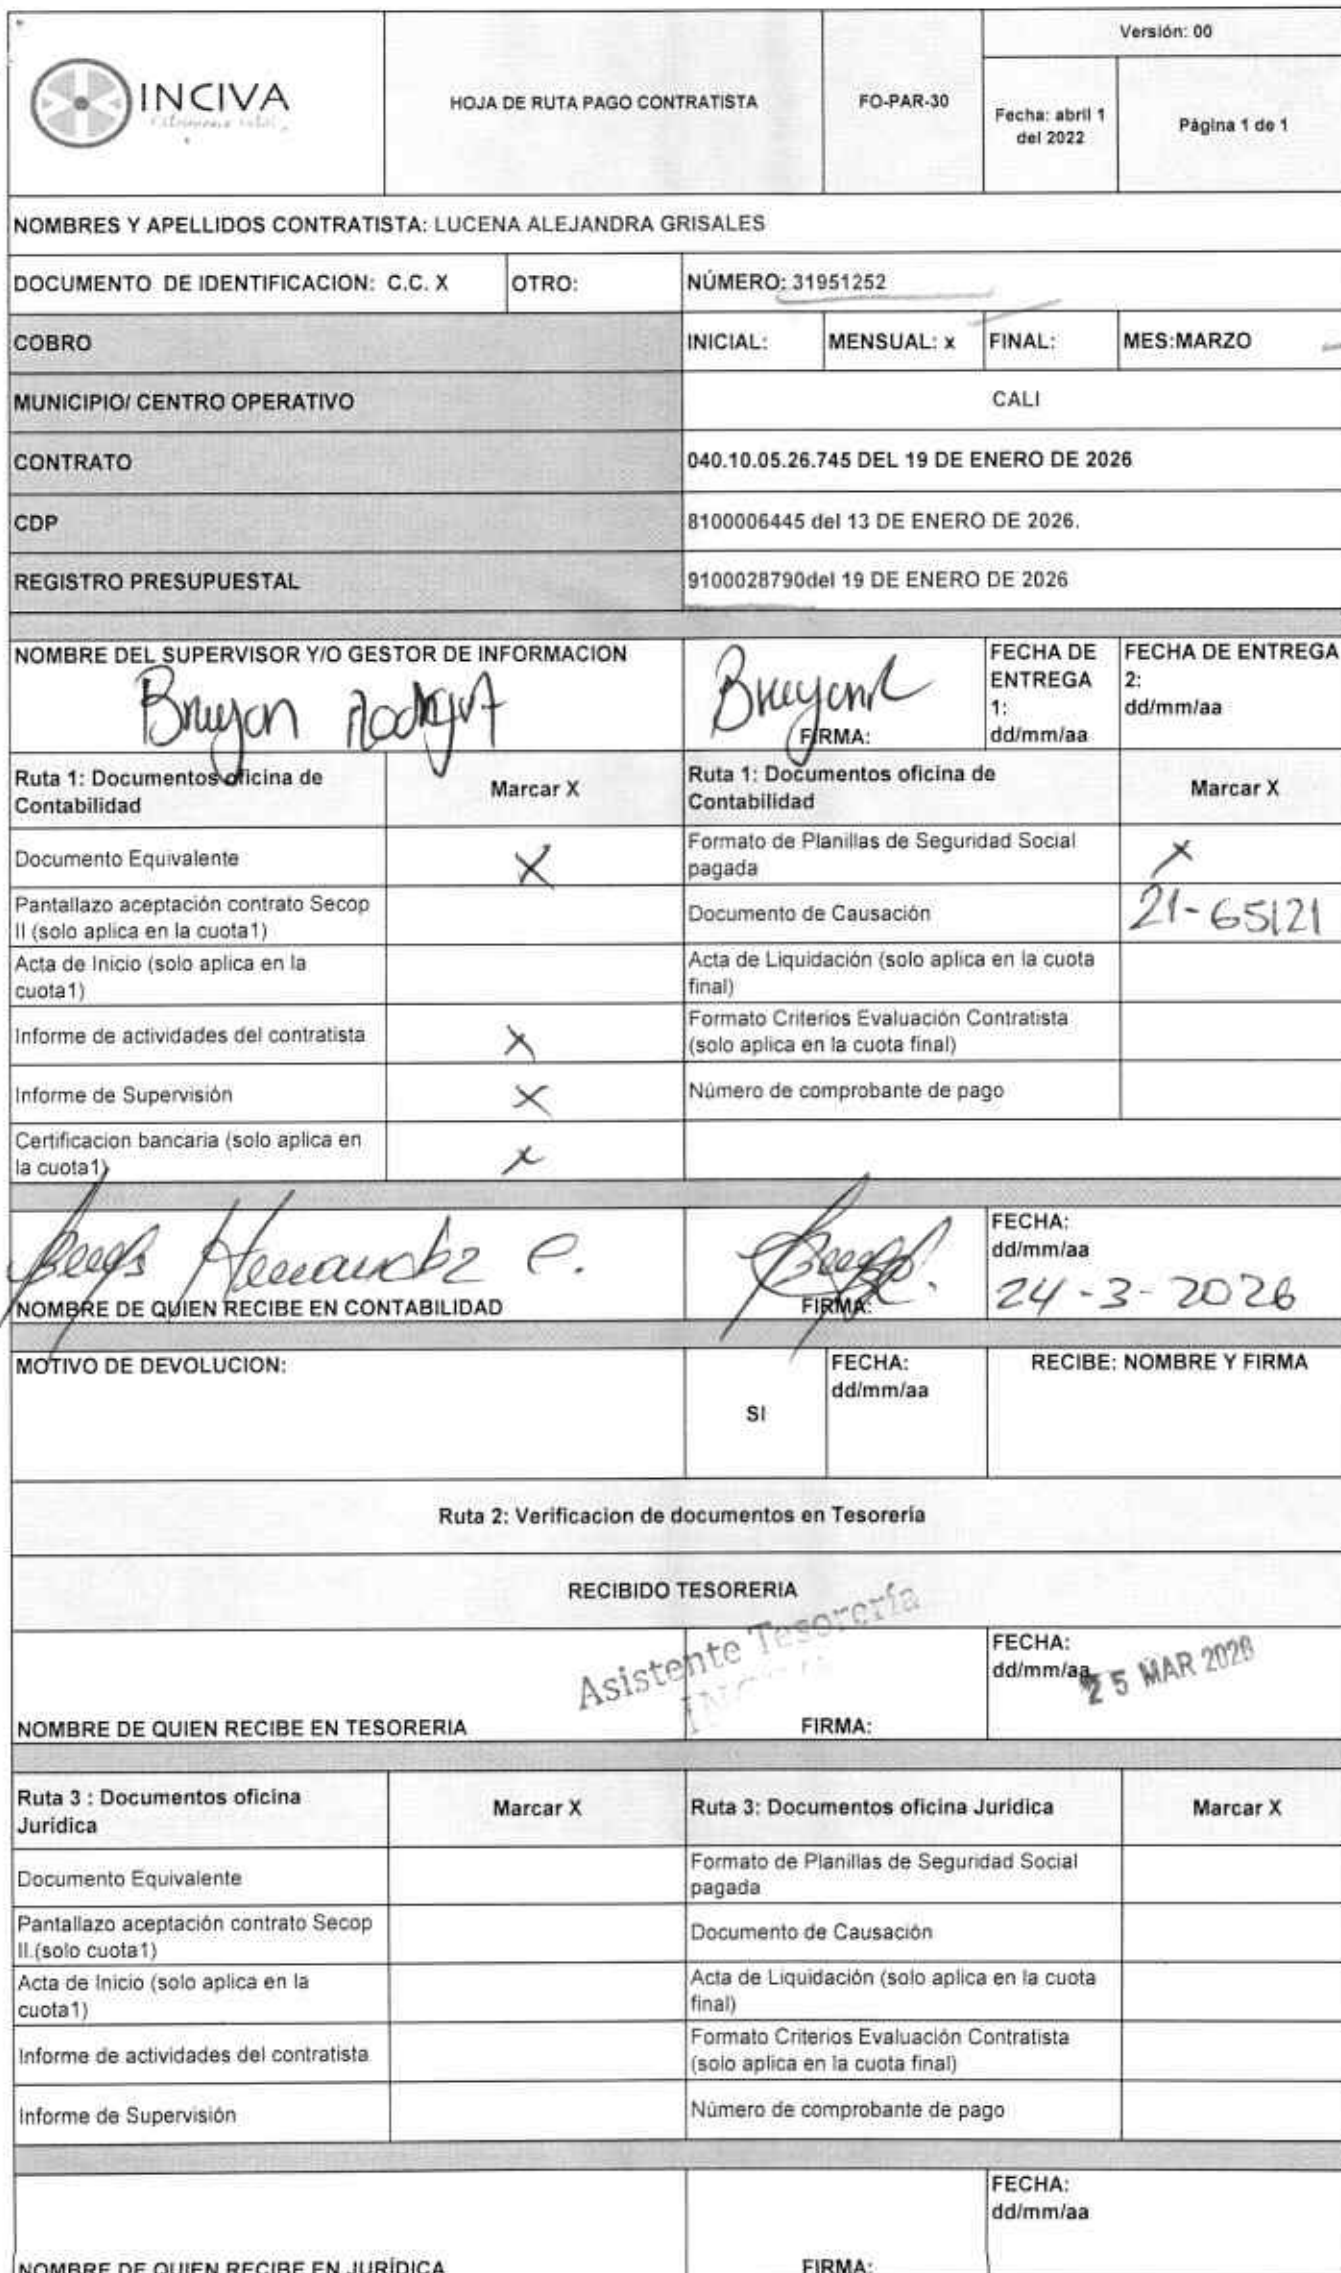 INCIVA
HOJA DE RUTA PAGO CONTRATISTA
FO-PAR-30
Versión: 00
Fecha: abril 1
del 2022
Página 1 de 1
NOMBRES Y APELLIDOS CONTRATISTA: LUCENA ALEJANDRA GRISALES
DOCUMENTO DE IDENTIFICACION: C.C. X
OTRO:
NÚMERO: 31951252
COBRO
INICIAL:
MENSUAL: x
FINAL:
MES:MARZO
MUNICIPIO/ CENTRO OPERATIVO
CALI
CONTRATO
040.10.05.26.745 DEL 19 DE ENERO DE 2026
CDP
8100006445 del 13 DE ENERO DE 2026.
REGISTRO PRESUPUESTAL
9100028790del 19 DE ENERO DE 2026
NOMBRE DEL SUPERVISOR Y/O GESTOR DE INFORMACION
FIRMA:
FECHA DE
ENTREGA
1:
dd/mm/aa
FECHA DE ENTREGA
2:
dd/mm/aa
Ruta 1: Documentos oficina de
Contabilidad
Marcar X
Ruta 1: Documentos oficina de
Contabilidad
Marcar X
Documento Equivalente
X
Formato de Planillas de Seguridad Social
pagada
X
Pantallazo aceptación contrato Secop
II (solo aplica en la cuota1)
Documento de Causación
21-65121
Acta de Inicio (solo aplica en la
cuota1)
Acta de Liquidación (solo aplica en la cuota
final)
Informe de actividades del contratista
X
Formato Criterios Evaluación Contratista
(solo aplica en la cuota final)
Informe de Supervisión
X
Número de comprobante de pago
Certificacion bancaria (solo aplica en
la cuota1)
x
Hernandez C.
NOMBRE DE QUIEN RECIBE EN CONTABILIDAD
FIRMA:
FECHA:
dd/mm/aa
24-3-2026
MOTIVO DE DEVOLUCION:
SI
FECHA:
dd/mm/aa
RECIBE: NOMBRE Y FIRMA
Ruta 2: Verificacion de documentos en Tesorería
RECIBIDO TESORERIA
Asistente Tesorería
NOMBRE DE QUIEN RECIBE EN TESORERIA
FIRMA:
FECHA:
dd/mm/aa
25 MAR 2026
Ruta 3 : Documentos oficina
Jurídica
Marcar X
Ruta 3: Documentos oficina Jurídica
Marcar X
Documento Equivalente
Formato de Planillas de Seguridad Social
pagada
Pantallazo aceptación contrato Secop
II.(solo cuota1)
Documento de Causación
Acta de Inicio (solo aplica en la
cuota1)
Acta de Liquidación (solo aplica en la cuota
final)
Informe de actividades del contratista
Formato Criterios Evaluación Contratista
(solo aplica en la cuota final)
Informe de Supervisión
Número de comprobante de pago
NOMBRE DE QUIEN RECIBE EN JURÍDICA
FIRMA:
FECHA:
dd/mm/aa